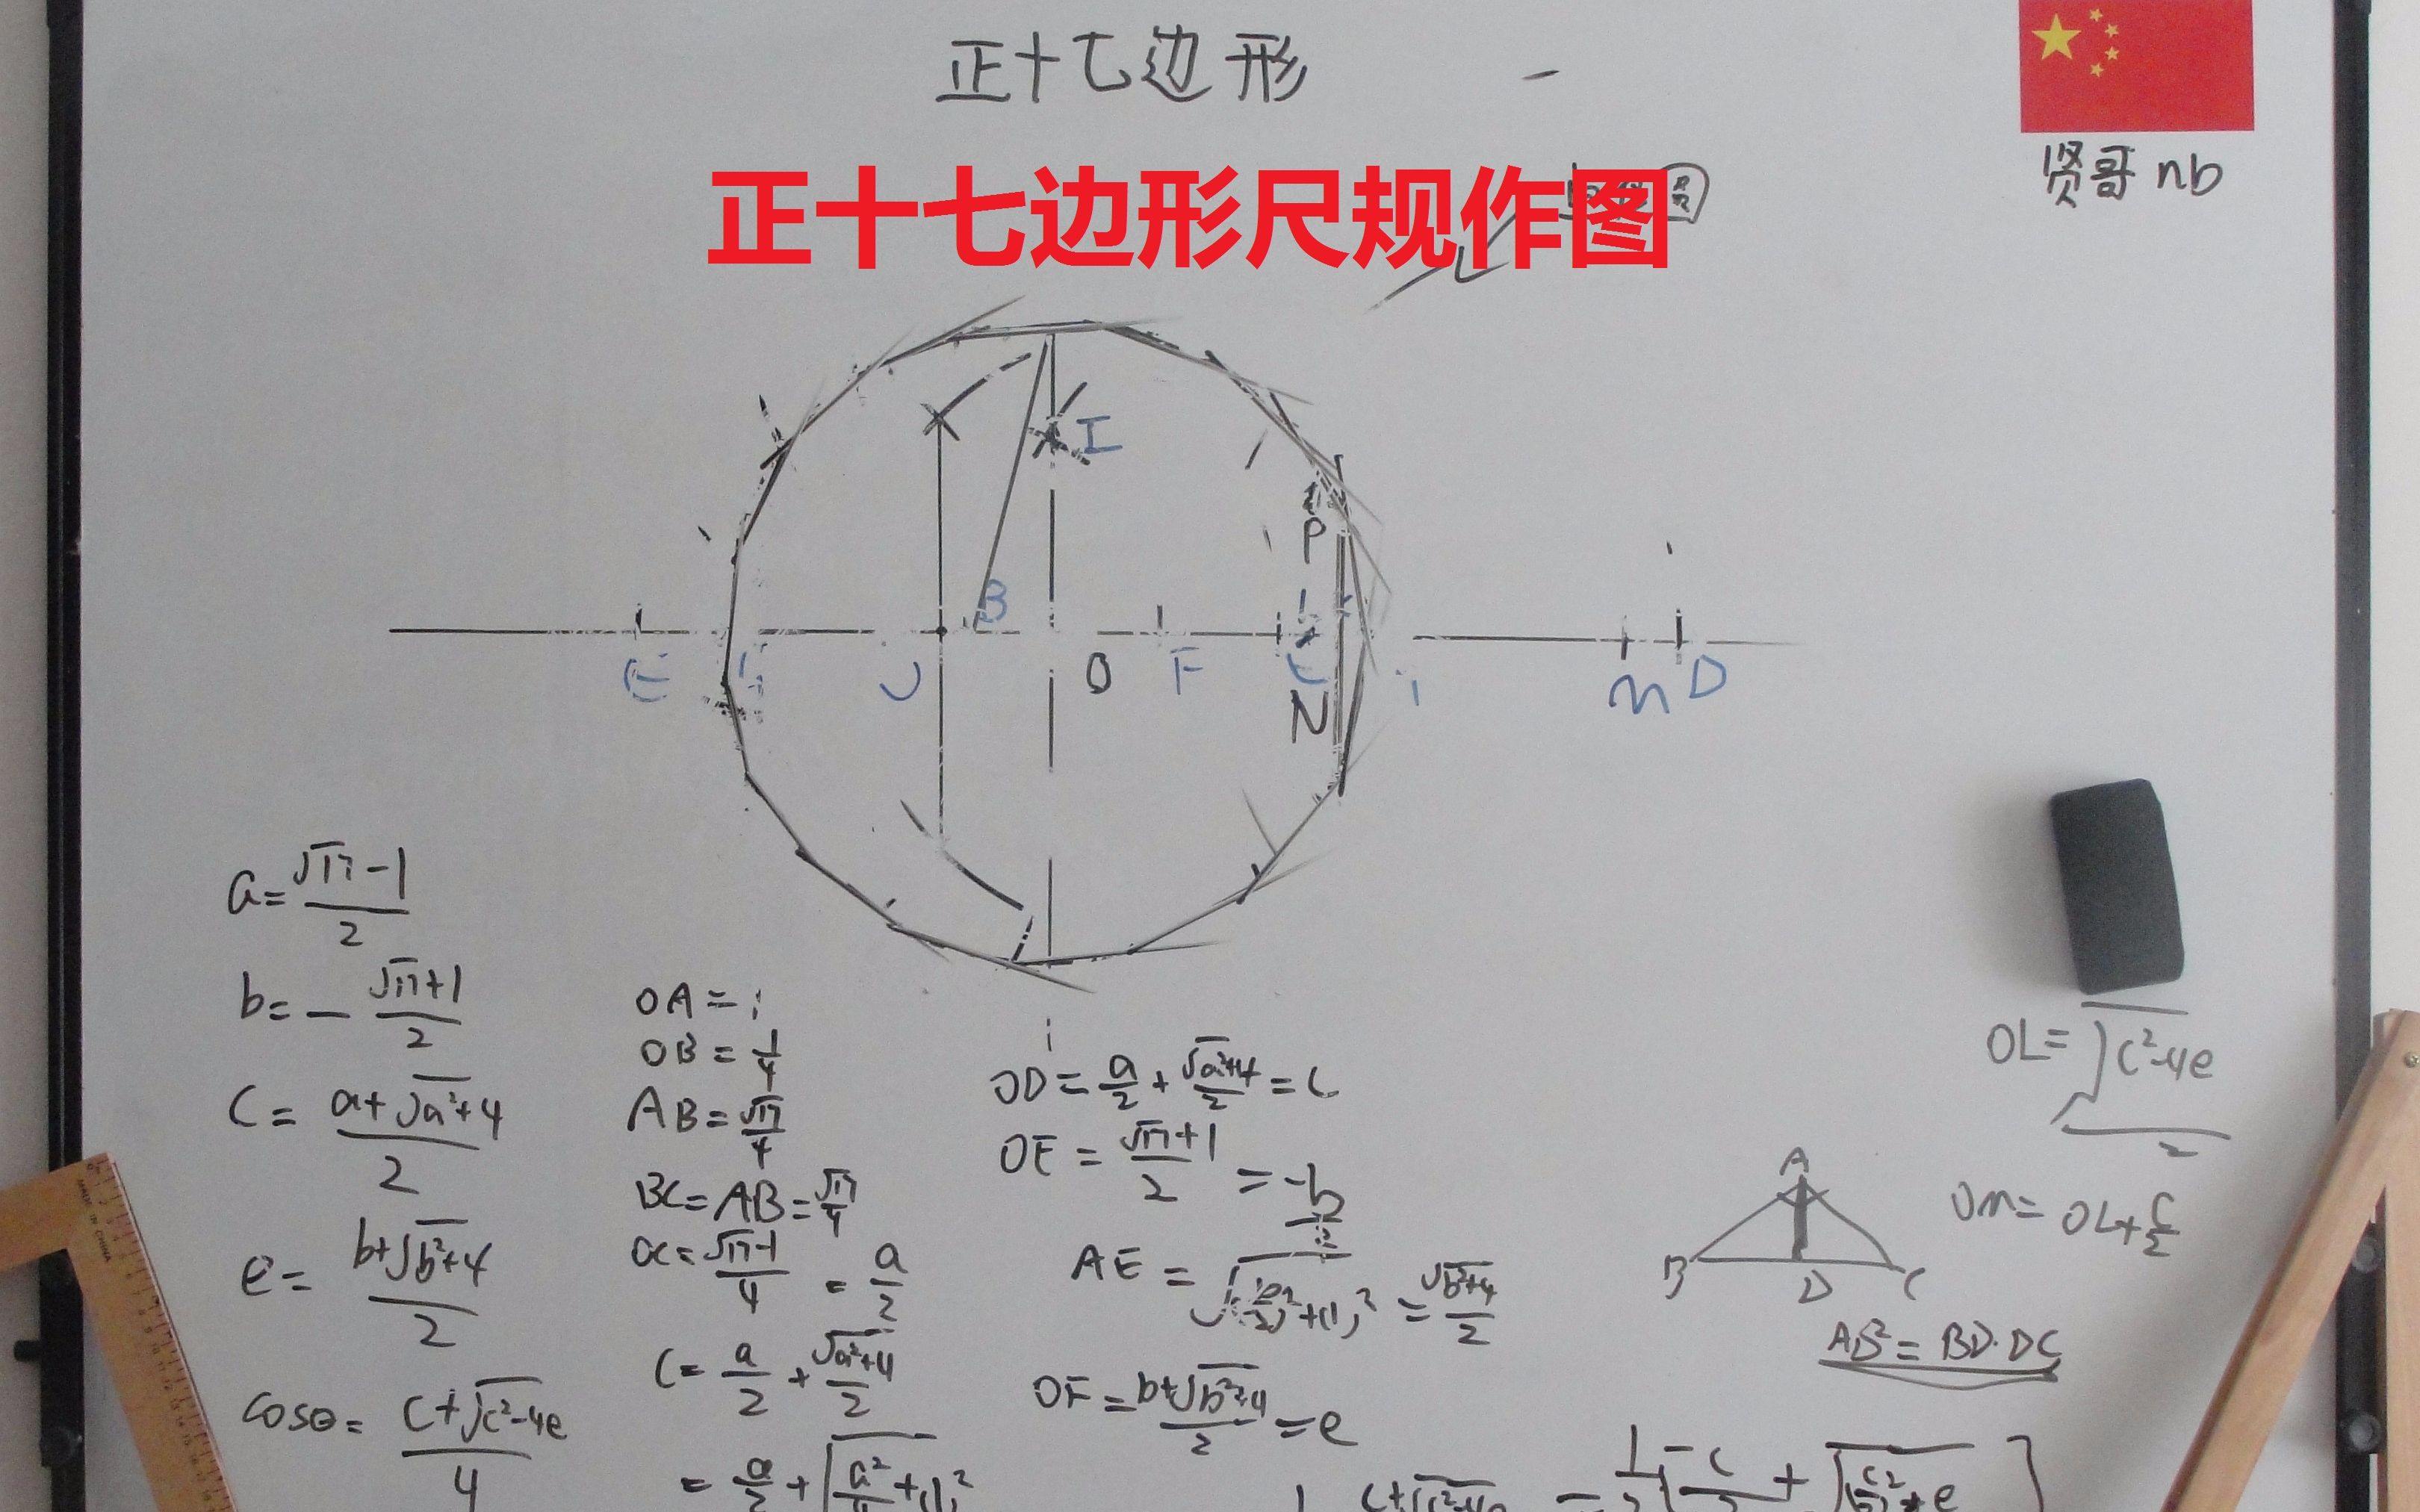 正十七边形
正十七边形尺规作图
贤哥 nb
I
P
B
E
J
O
F
N
m
D
a=(√17-1)/2
b=-(√17+1)/2
C=(a+√(a²+4))/2
e=(b+√(b²+4))/2
cosθ=(c+√(c²-4e))/4
OA=1
OB=1/4
AB=√17/4
BC=AB=√17/4
OC=(√17-1)/4=a/2
C=a/2+√(a²+4)/2
OD=a/2+√(a²+4)/2=C
OE=(√17+1)/2=-b
AE=
=√(b²+4)/2
OF=(b+√(b²+4))/2=e
OL=√(c²-4e)/2
Om=OL+C/2
A
B D C
AD²=BD·DC